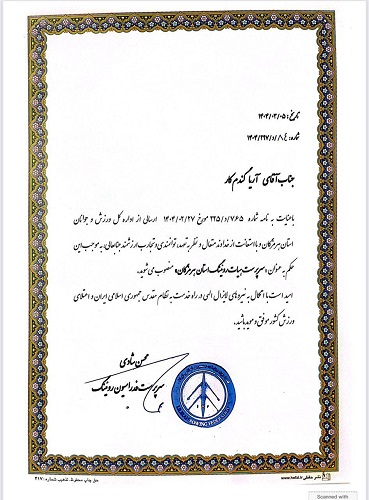 تاریخ: ۱۴۰۴/۰۳/۰۵
شماره: ۱۴۰۴/۲۹۷/د/۸۰۴
جناب آقای آریا گندم کار
با عنایت به نامه شماره ۲۲۵/د/۷۶۵ مورخ ۱۴۰۴/۰۲/۲۷ ارسالی از اداره کل ورزش و جوانان
استان هرمزگان و با استعانت از خداوند متعال و نظر به تعهد، توانمندی و تجارب ارزشمند جنابعالی، به موجب این
حکم به عنوان «سرپرست هیات روئینگ استان هرمزگان» منصوب می شوید.
امید است با اتکال به نیروهای لایزال الهی در راه خدمت به نظام مقدس جمهوری اسلامی ایران و اعتلای
ورزش کشور موفق و موید باشید.
محسن شادی
سرپرست فدراسیون روئینگ
ROWING FEDERATION
حق چاپ محفوظ، تذهیب شماره: ۲۱۷
Scanned with